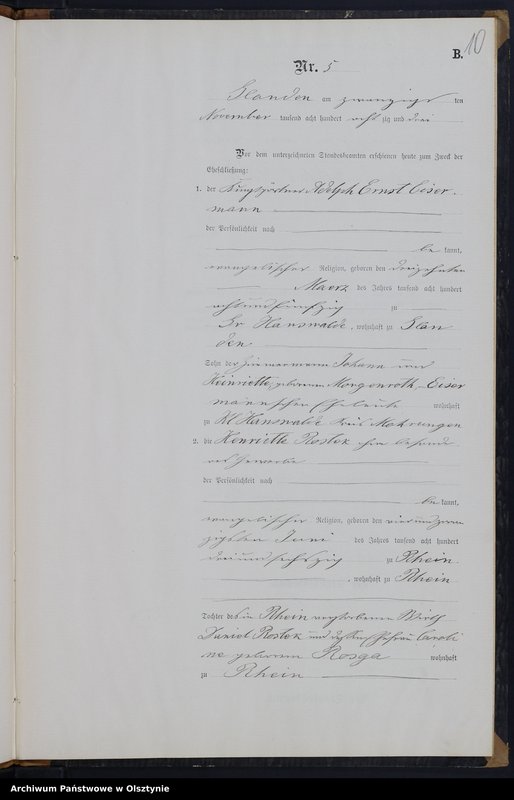 B. 10
Nr. 5
Glanden am zwanzigsten
November tausend acht hundert acht zig und drei
Vor dem unterzeichneten Standesbeamten erschienen heute zum Zweck der
Eheschließung:
1. der Adolph Ernst Eiser-
mann
der Persönlichkeit nach
be kannt,
evangelischer Religion, geboren den dreizehnten
Maerz des Jahres tausend acht hundert
achtundfünfzig zu
Gr Hanswalde, wohnhaft zu Glan
den
Sohn der Johann und
Heinriette, geborenen Morgenroth-Eiser
mannschen Eheleute wohnhaft
zu Kl Hanswalde Kreis Mohrungen
2. die Henriette Rostek ohne besonde
res Gewerbe
der Persönlichkeit nach
be kannt,
evangelischer Religion, geboren den vierundzwan
zigsten Juni des Jahres tausend acht hundert
dreiundsechszig zu Rhein
, wohnhaft zu Rhein
Tochter des in Rhein verstorbenen Wirth
Daniel Rostek und dessen Ehefrau Caroli
ne geborenen Rosga wohnhaft
zu Rhein
Archiwum Państwowe w Olsztynie